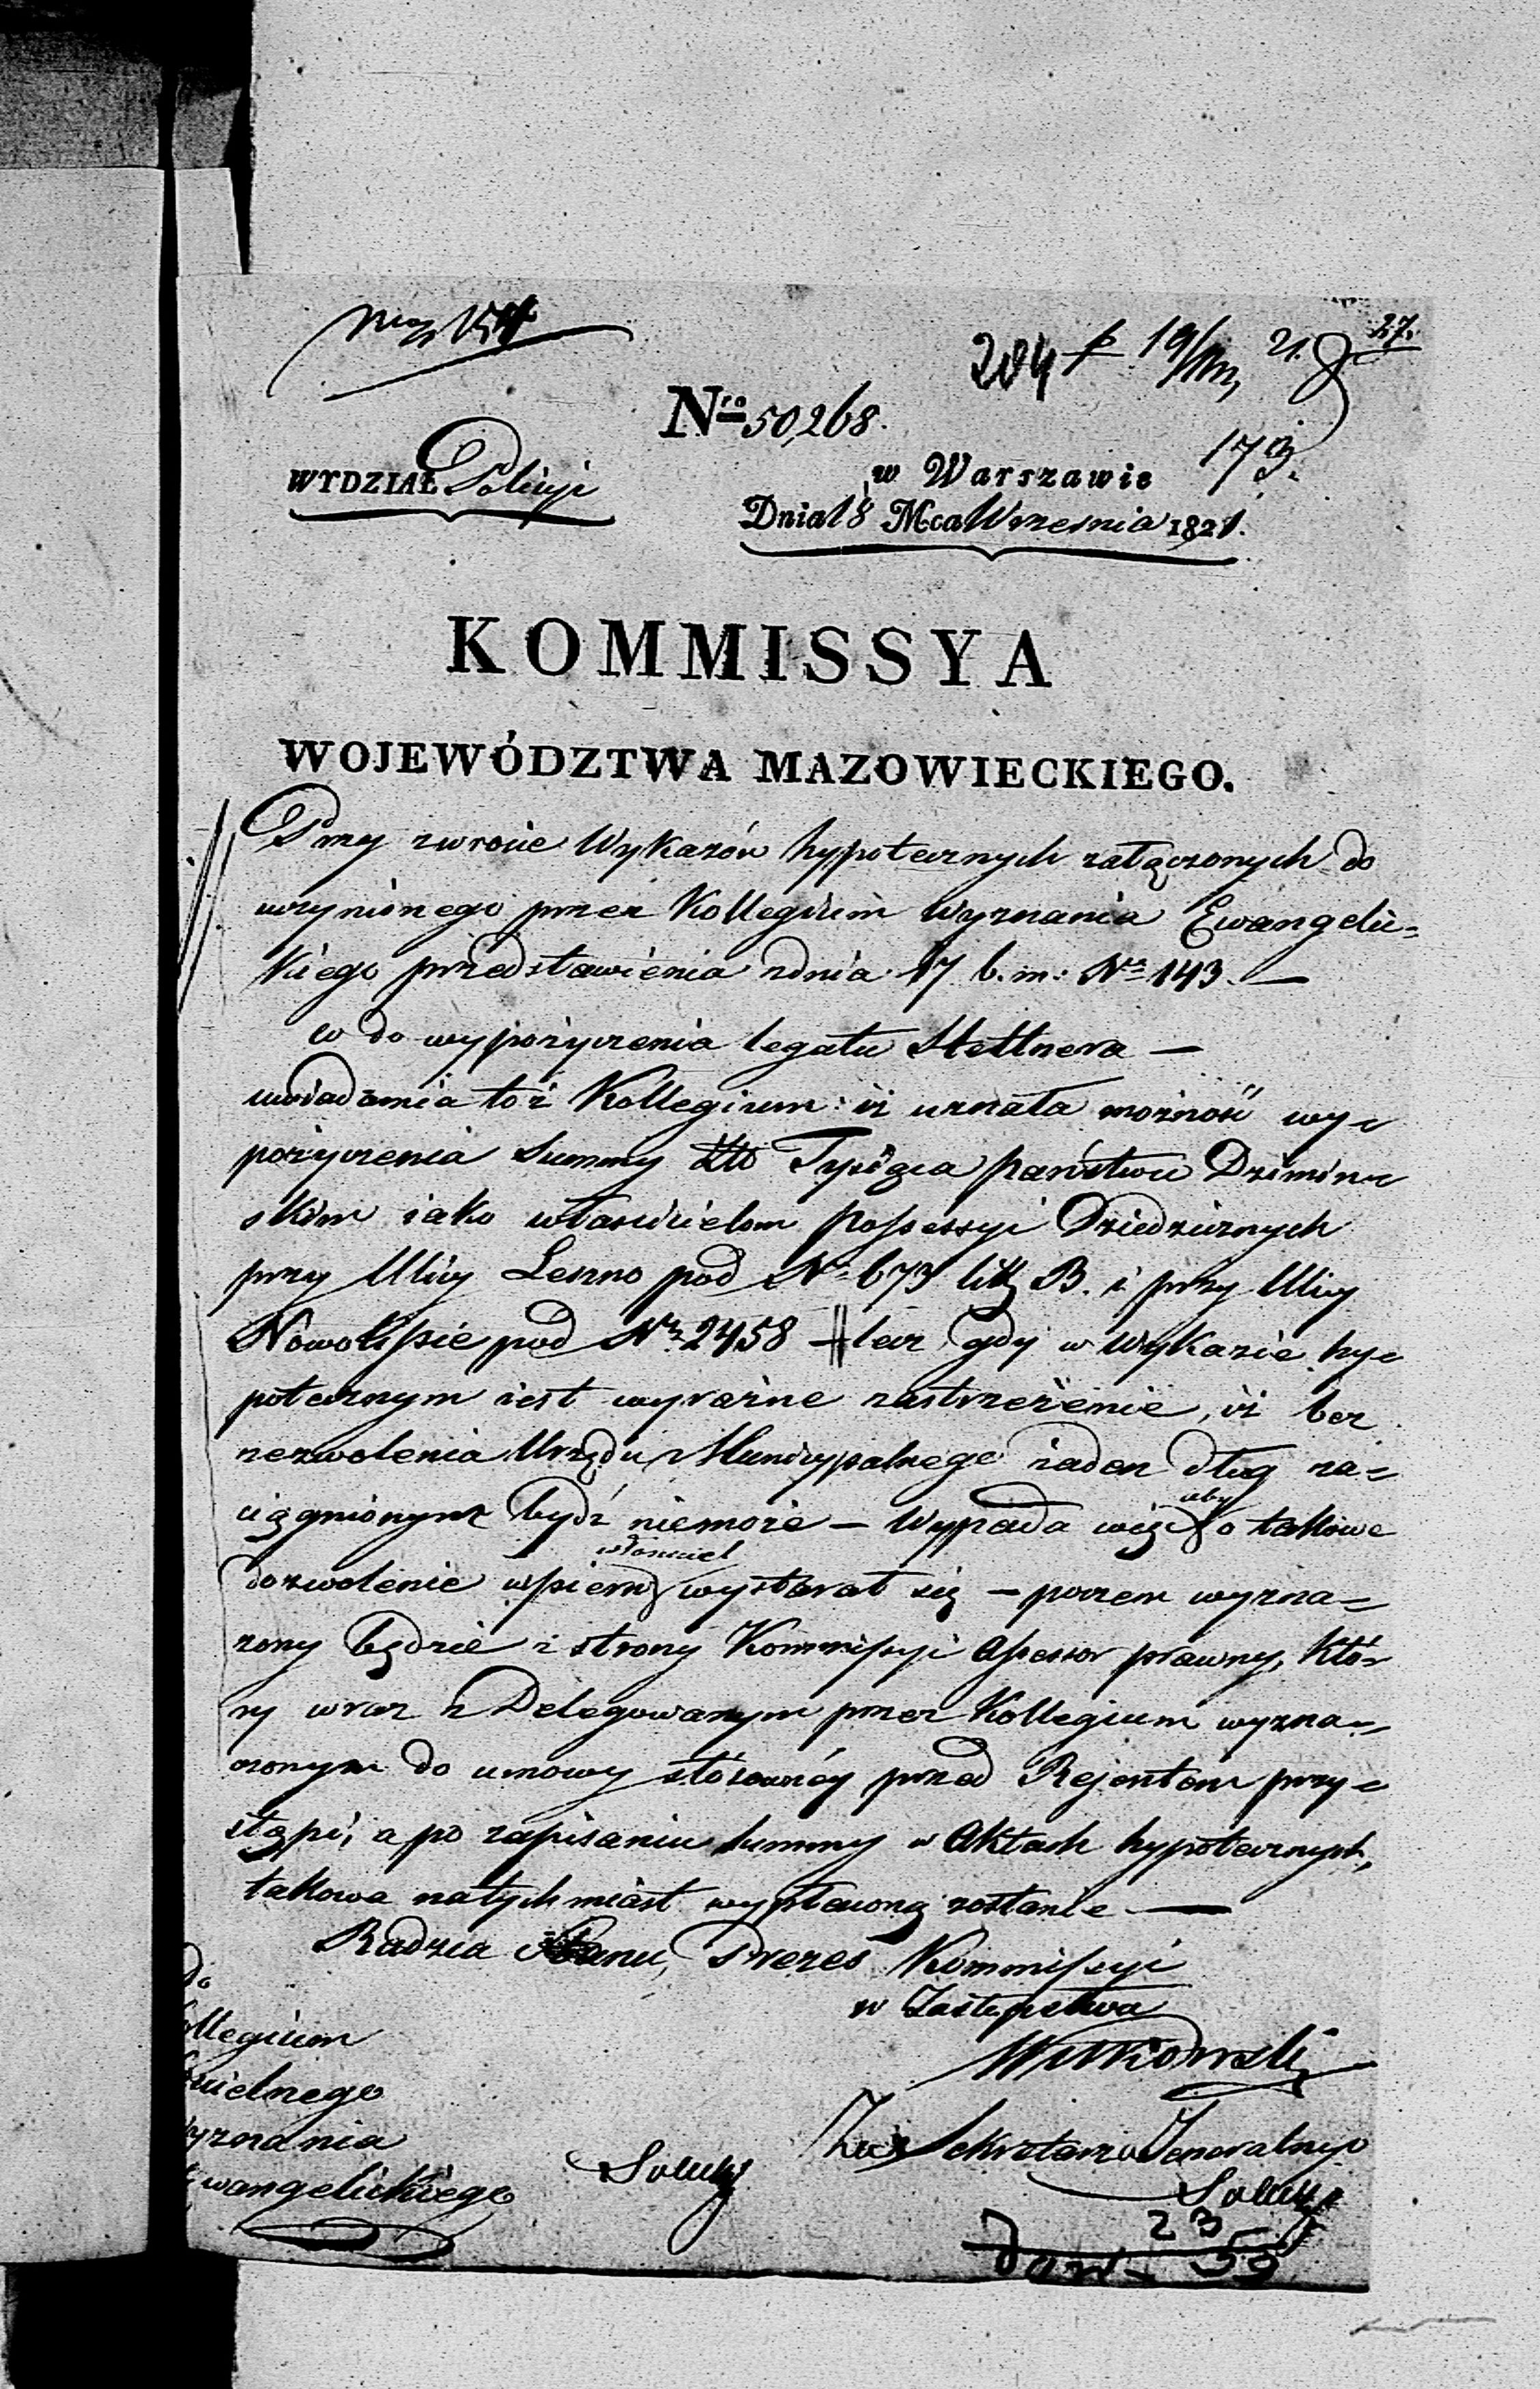 204 19/VIII, 21. 27.
Nro 50,268.
173.
WYDZIAŁ Policyi
w Warszawie
Dnia 18 Mca Wrzesnia 1821.
KOMMISSYA
WOJEWÓDZTWA MAZOWIECKIEGO.
Przy zwrocie Wykazów hypotecznych załączonych do
uczynionego przez Kollegium Wyznania Ewangelic-
kiego przedstawienia z dnia 17 b. m: No 143. —
co do wypożyczenia legatu Stettnera —
uwiadamia toż Kollegium: iż uznała możność wy-
pożyczenia Summy Tysiąca państwu Dzimin-
skim iako właścicielom Possessyi Dziedzicznych
przy Ulicy Leszno pod No 673 litt B. i przy Ulicy
Nowolipie pod No 2458 — lecz gdy w Wykazie hy-
potecznym iest wyraźne zastrzeżenie, iż bez
zezwolenia Urzędu Municypalnego żaden dług za-
ciągnionym bydź niemoże — Wypada więc aby o takowe
dozwolenie wpierw właściciel wystarał się — poczem wyzna-
czony będzie z strony Kommissyi Assessor prawny, któ-
ry wraz z Delegowanym przez Kollegium wyzna-
czonym do umowy stósownéy przed Rejentem przy-
stąpi, a po zapisaniu summy w Aktach hypotecznych,
takowa natychmiast wypłaconą zostanie. —
Radzca Stanu, Prezes Kommissyi
w Zastępstwie
Witkowski
do
ollegium
cielnego
yznania
wangelickiego
Za Sekretarza Jeneralnego
23
59